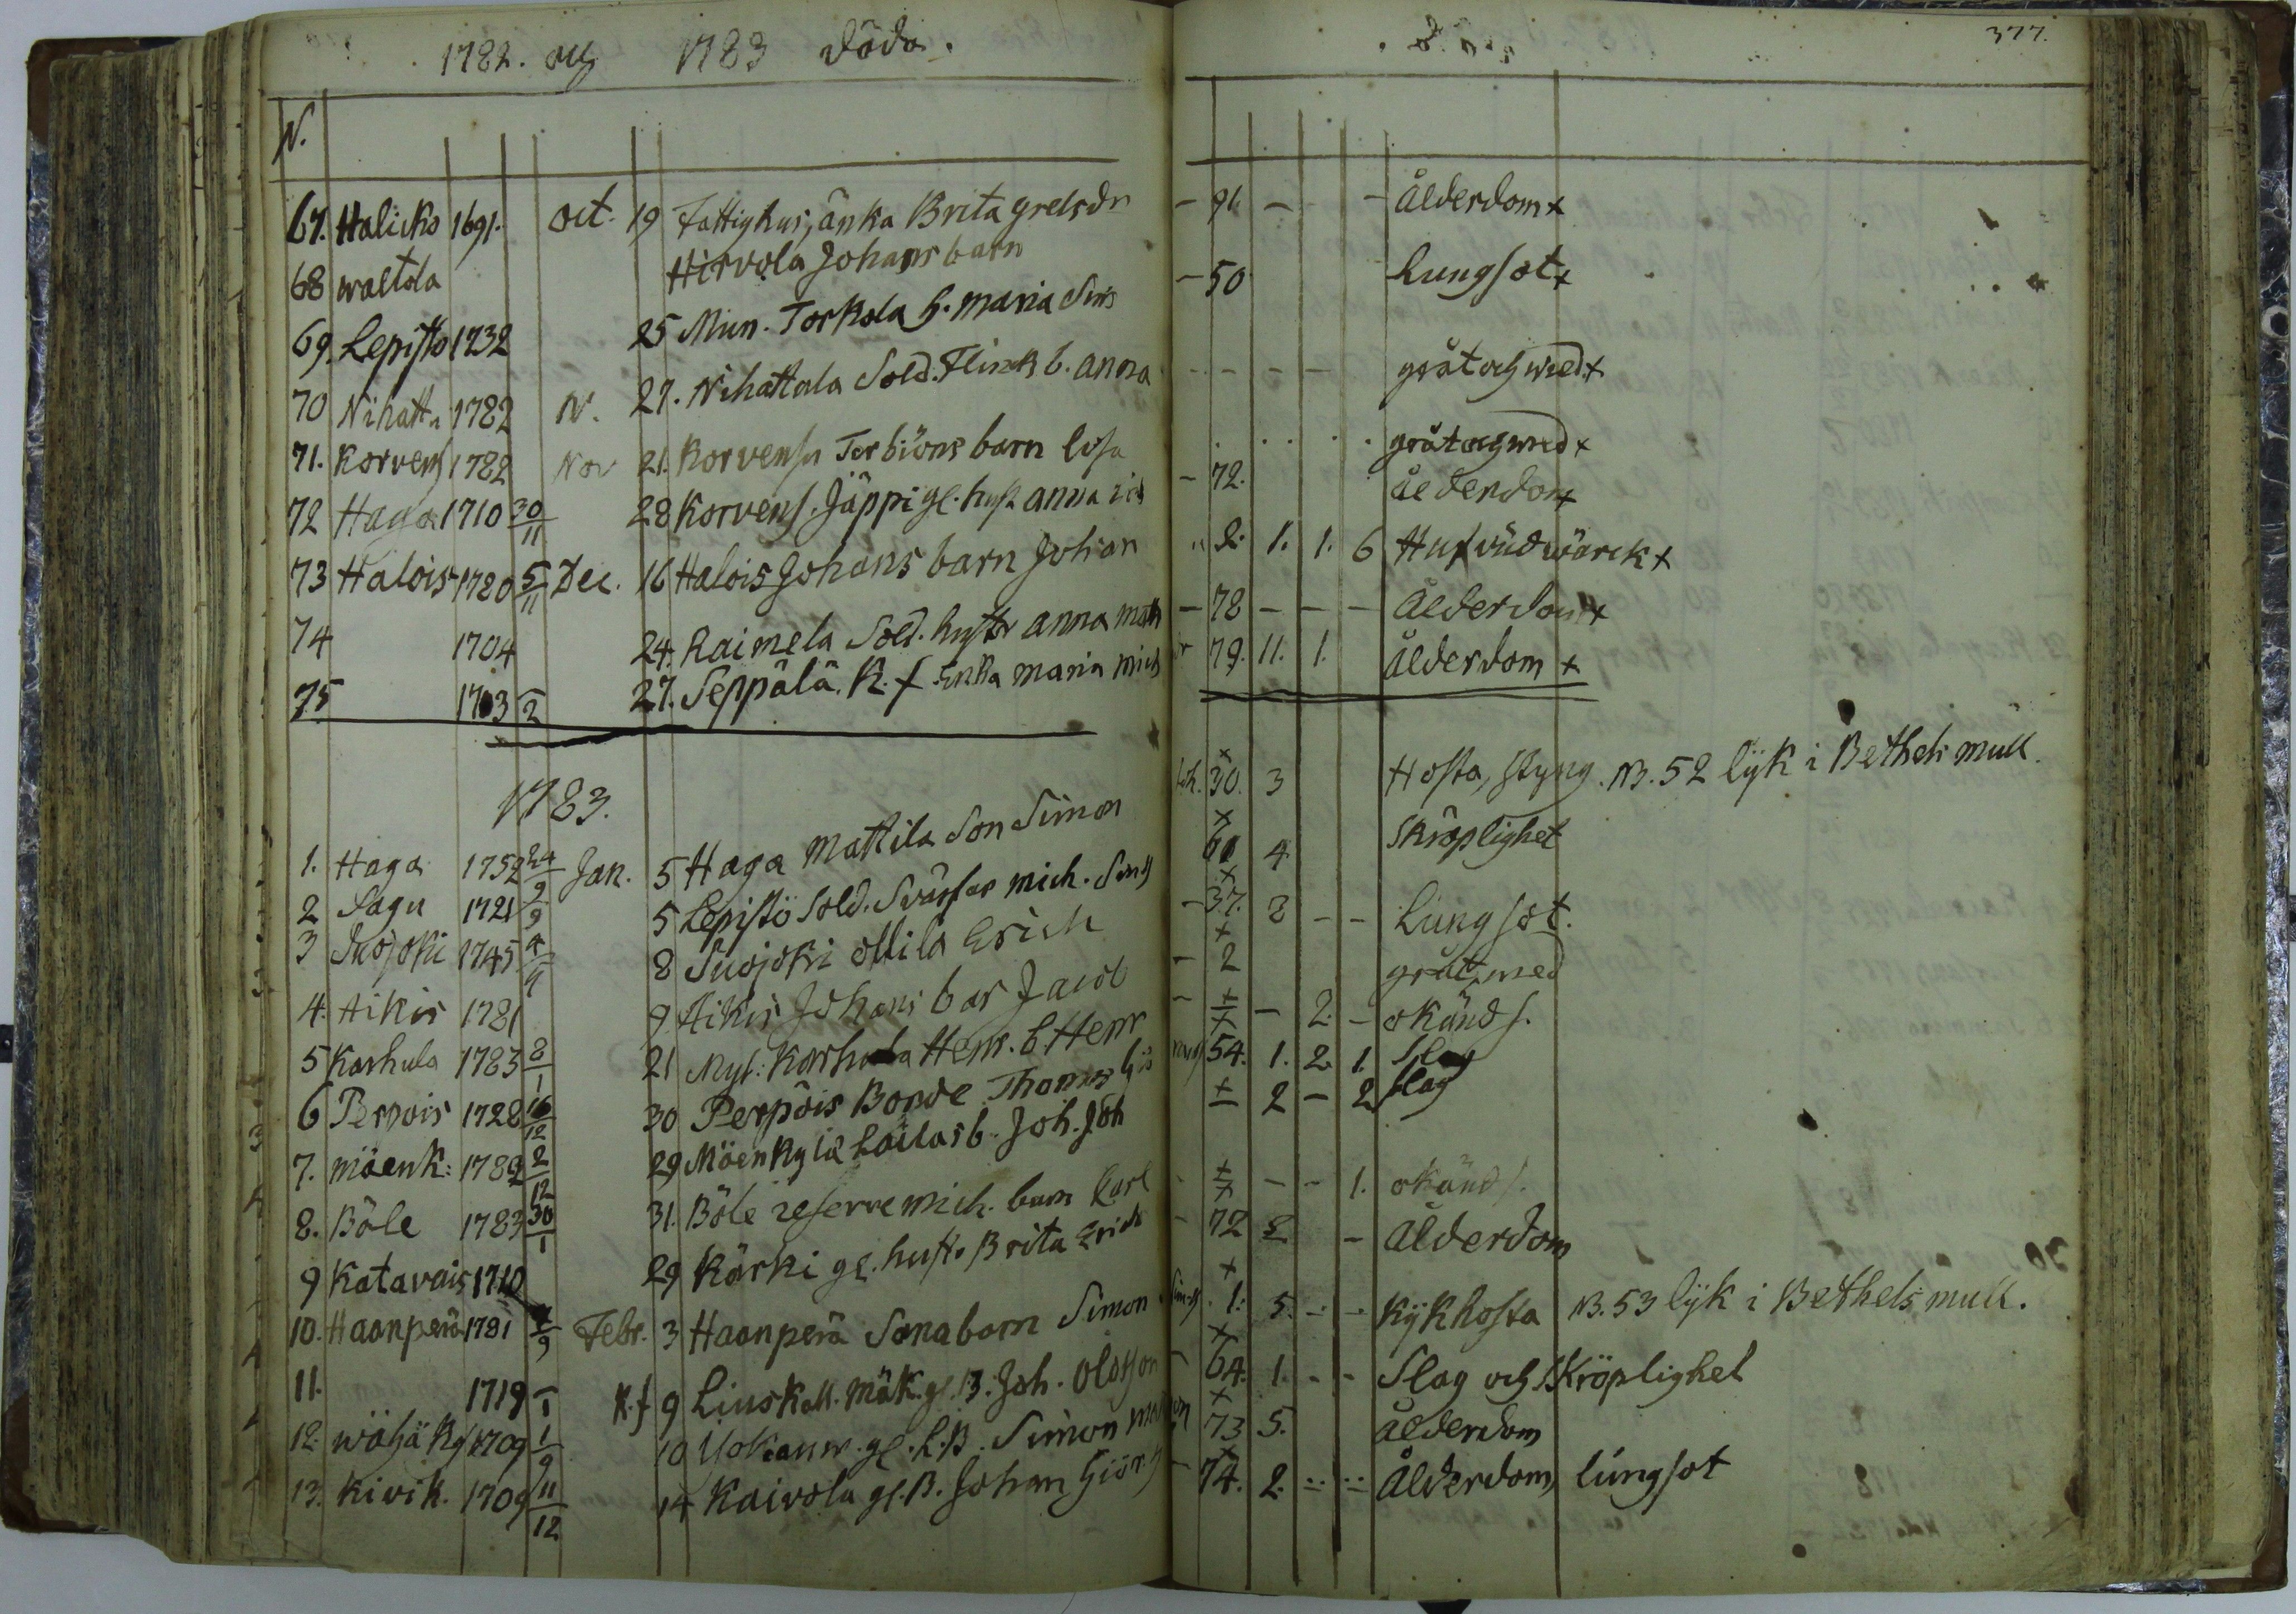 1782. och 1783 döda.
377.
N.
67. Halicko 1691. oct. 19 Fattighus, änka Brita grelsdr - 91 - - ålderdom x
68 waltola Hirvola Johans barn
69. Lepistö 1732 25 Mun. Torkola h. maria Sims - 50 Lungsot x
70 Nihatt 1782 N. 27. Nihattula Sold. Flinks b. anna - - - - gråt och wred x
71. Korvens 1782 Nov 21. Korvensu Torbiöns barn lisa . . . . gråt och wred x
72 Haga 1710 30/11 28 Korvens. Jäppi gl. hust anna - 72. ålderdom x
73 Halois 1780 5/11 Dec. 16 Halois Johans barn Johan 2. 1. 1. 6 Hufvudwärck x
74 1704 24. Raimela Sold. hustr anna matts - 78 - - - ålderdom x
75 1703 2 27. Seppälä. R. f Enka maria mich 79. 11. 1. ålderdom x
1783.
1. Haga 1752 24/9 Jan. 5 Haga Mattila Son Simon Joh. 30. 3 Hosta, styng. NB. 52 lÿk i Bethels mull.
2 Sagu 1721 9 5 Lepistö Sold. mich. Sims 61 4 Skröplighet
3 Suojoki 1745 4/11 8 Suojoki ollila Erich - 37. 2 - - Lungsot.
4. Aikis 1781 9. Aikis Johans bar Jacob - 2 gråt, wred
5 Karhula 1783 8/1 21 Nyk: Karhula Henr. b. Henr - + - 2 - okänd s.
6 Perpois 1728 16/12 30 Perpöis Bonde Thomas 54. 1. 2. 1. Slag
7. mäenk: 1782 2/12 29 Mäenkylä Lailas b. Joh. Joh + 2 - 2 slag
8. Böle 1783 30/1 31. Böle reserve mich. barn Karl - + - - 1. okänd s.
9 Katavais 1710 29 Kärki gl. hust. Brita Erich - 72 2 - ålderdom
10. Haanperä 1781 9 Febr. 3 Haanperä Sona barn Simon Sims 1. 5. - - Kÿkhosta NB. 53 lÿk i Bethels mull.
11. 1719 1 R. f 9 Liuskall. mäk. gl. B. Joh. Olofson - 64. 1. - - Slag och Skröplighet
12. wähäky 1709 1/9 10 gl. R. B. Simon 73 5. ålderdom
13. Kivik. 1709 11/12 14 Kaivola gl. B. Johan Giörs - 74. 2. ålderdom, lungsot